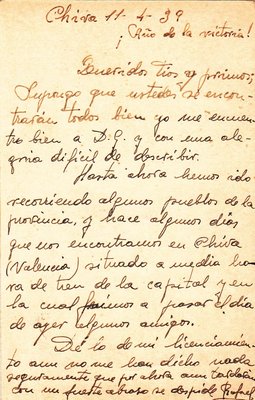 Chiva 11-4-39
¡Año de la victoria!
Queridos Tios y primos;
Supongo que ustedes se encon-
traran todos bien yo me encuen-
tro bien a D.G. y con una ale-
gria dificil de describir.
Hasta ahora hemos ido
recorriendo algunos pueblos de la
provincia, y hace algunos dias
que nos encontramos en Chiva
(Valencia) situado a media ho-
ra de tren de la capital y en
la cual fuimos a pasar el dia
de ayer algunos amigos.
De lo de mi licenciamien-
to aun no me han dicho nada
seguramente que por ahora aun tardaran
con un fuerte abrazo se despide Rafael